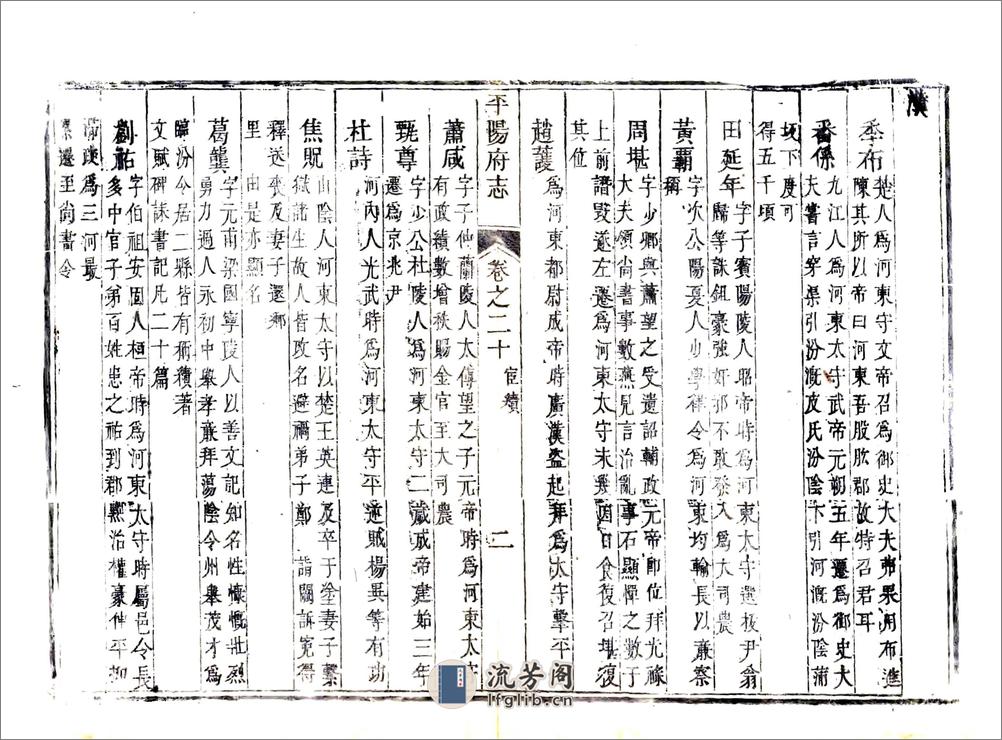 漢
季布 楚人爲河東守文帝召爲御史大夫弗果用布進
陳其所以帝曰河東吾股肱郡故特召君耳
番係 九江人爲河東太守武帝元朔五年遷爲御史大
夫嘗言穿渠引汾漑皮氏汾陰下引河漑汾陰蒲
坂下度可
得五千頃
田延年 字子賓陽陵人昭帝時爲河東太守選拔尹翁
歸等誅鉏豪強奸邪不敢發入爲大司農
黃霸 字次公陽夏人少學律令爲河東均輸長以亷察
稱
周堪 字少卿與蕭望之受遺詔輔政元帝卽位拜光祿
大夫領尚書事數燕見言治亂事石顯憚之數于
上前譖毀遂左遷爲河東太守未幾因日食復召堪復
其位
趙護 爲河東都尉成帝時廣漢盜起拜爲太守擊平
平陽府志 卷之二十 宦績 二
蕭咸 字子仲蘭陵人太傅望之子元帝時爲河東太守
有政績數增秩賜金官至大司農
甄尊 字少公杜陵人爲河東太守二歲成帝建始三年
遷爲京兆尹
杜詩 河內人光武時爲河東太守平逆賊楊異等有功
焦貺 山陰人河東太守以楚王英連及卒于途妻子繫
獄諸生故人皆改名避禍弟子鄭 詣闕訴寃得
釋送喪及妻子還鄉
里 由是亦顯名
葛龔 字元甫梁國寧陵人以善文記知名性慷慨壯烈
勇力過人永初中舉孝亷拜蕩陰令州舉茂才爲
臨汾令居二縣皆有稱績著
文賦碑誄書記凡二十篇
劉祐 字伯祖安國人桓帝時爲河東太守時屬邑令長
多中官子弟百姓患之祐到郡黜治權豪伸平
政爲三河最
遷至尚書令
流芳阁
lfglib.cn